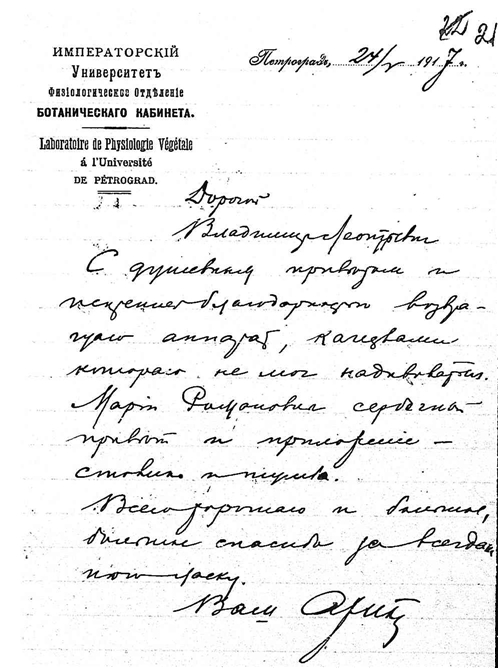 21
ИМПЕРАТОРСКІЙ
Университетъ
Физіологическое Отдѣленіе
БОТАНИЧЕСКАГО КАБИНЕТА.
Laboratoire de Physiologie Végétale
á l'Université
DE PÉTROGRAD.
Петроградъ, 24/V 1917 г.
Дорогой
Владимир Леонтьевич
С душевным приветом и
благодарностью возвра-
щаю аппарат, качествами
которого не мог надивиться.
Марии Романовне сердечный
привет и приложение –
Всего хорошего и большое,
большое спасибо за всегдаш
нюю ласку.
Ваш